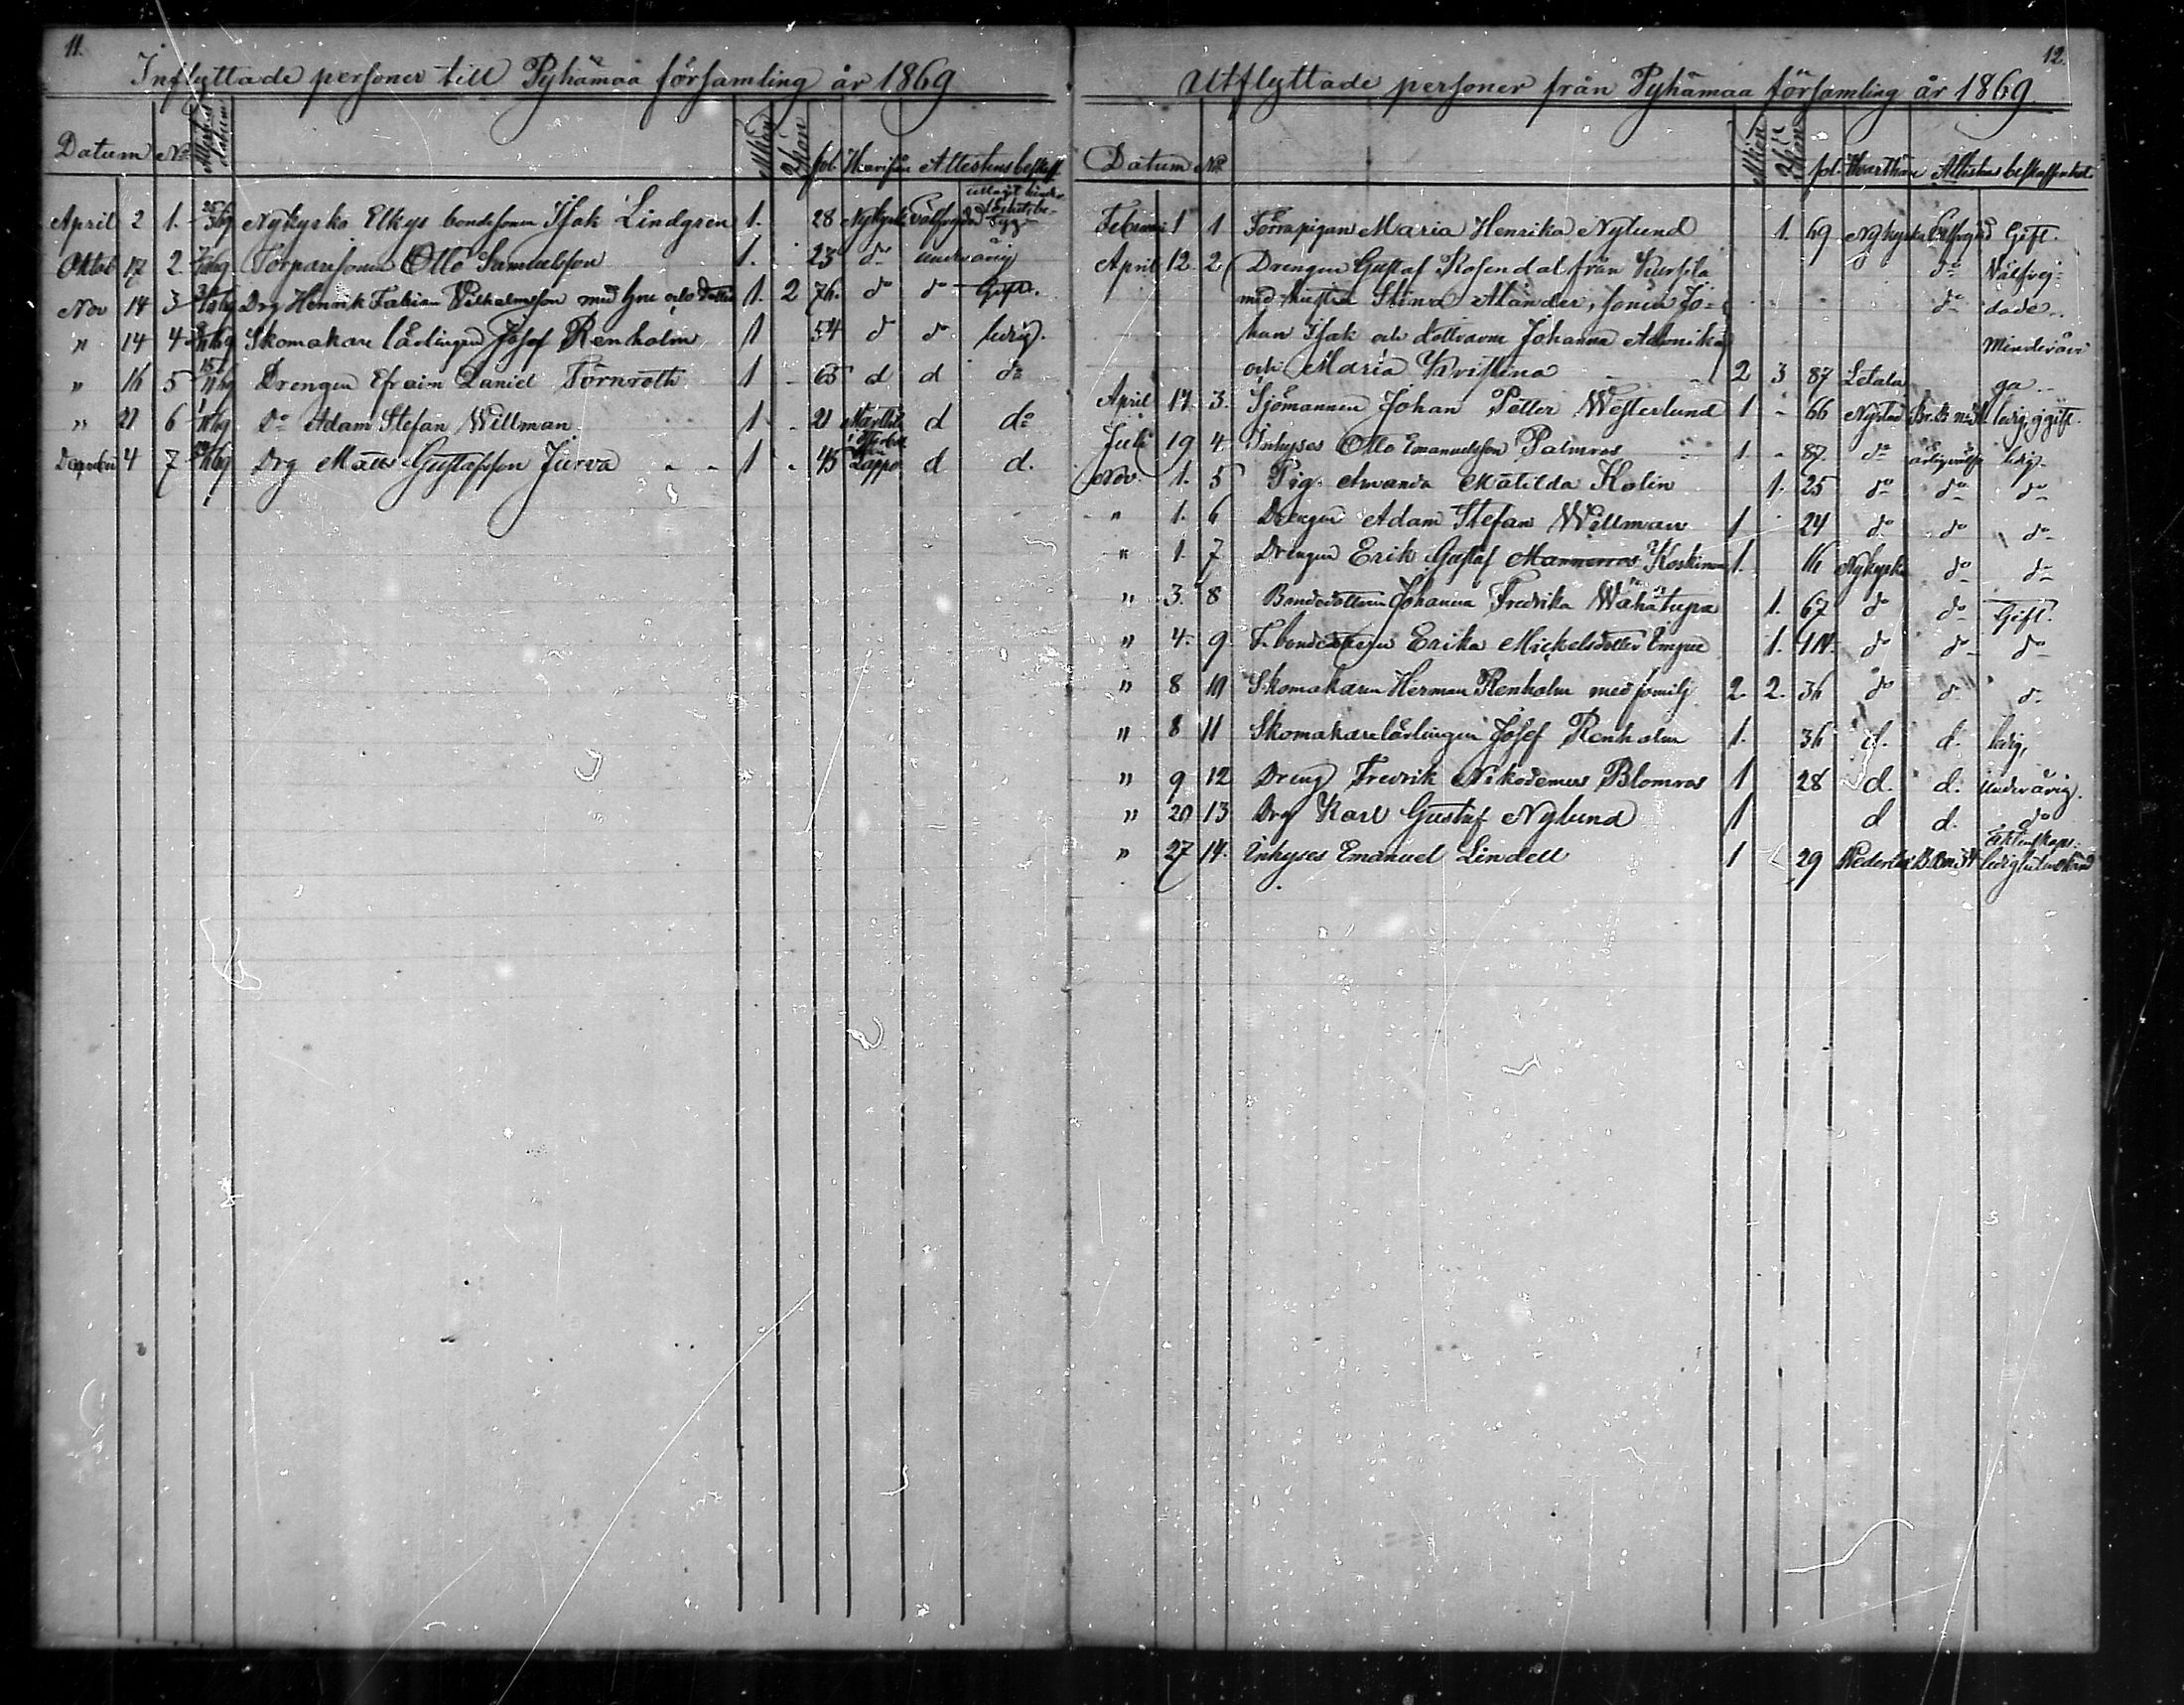 11.
Inflyttade personer till Pyhämaa församling år 1869
Datum No Attestens datum Mkön Qkön fol. Hvarifrån Attestens beskaff.
April 2 1. Nykyrko Elkys bondesonen Isak Lindgren 1. 28 Nykyrka
Oktob 17 2. Torparesonen Otto Samuelsson 1. 23 do underårig
Nov 14 3 Drg Henrik Fabian Vilhelmsson med hu och dotter 1. 2 76. do do Gift.
" 14 4 Skomakare lärlingen Josef Renholm 1 54 d do ledig.
" 16 5 Drengen Efraim Daniel Törnroth 1 - 65 d d do
" 21 6 Do Adam Stefan Willman 1 - 21 d do
December 4 7 Drg Matts Gustafsson Jurva - - 1 - 45 Lappo d d.
12.
Utflyttade personer från Pyhämaa församling år 1869.
Datum No Mkön Qkön fol. Hvarthän Attestens beskaffenhet
Februari 1 1 Torrapigan Maria Henrika Nylund 1. 69 Nykyrka Gift.
April 12. 2. Drengen Gustaf Rosendal från Kursila do Välfrej-
med hustru Stina Alander, sonen Jo- do dade
han Isak och döttrarne Johanna Minderåri
och Maria Kristina 2 3 87 Letala ga
April 17. 3. Sjömannen Johan Petter Westerlund 1 - 66 Nystad ledig, ogift.
Juli 19 4. Inhyses Otto Emanuelsson Palmros 1 - 87 do ledig
Nov. 1. 5 Pig. Amanda Matilda Holin 1. 25 do do do
" 1. 6 Drengen Adam Stefan Willman 1 24 do do do
" 1. 7 Drengen Erik Gustaf Mannerros Koskinen 1. 16 Nykyrka do do
" 3. 8 Bondedottren Johanna Fredrika Wähätupa 1. 67 do do Gift.
" 4. 9 Erika Mickelsdotter 1. do do do
" 8 10 Skomakaren Herman Renholm med familj 2. 2. 36 do d. d.
" 8 11 Skomakarelärlingen Josef Renholm 1. 36 d. d. ledig,
" 9 12 Dreng Fredrik Nikodemus Blomros 1 28 d. d. underårig.
" 20 13 Drg Karl Gustaf Nylund 1 d d. do
" 27 14. Inhyses Emanuel Lindell 1 29